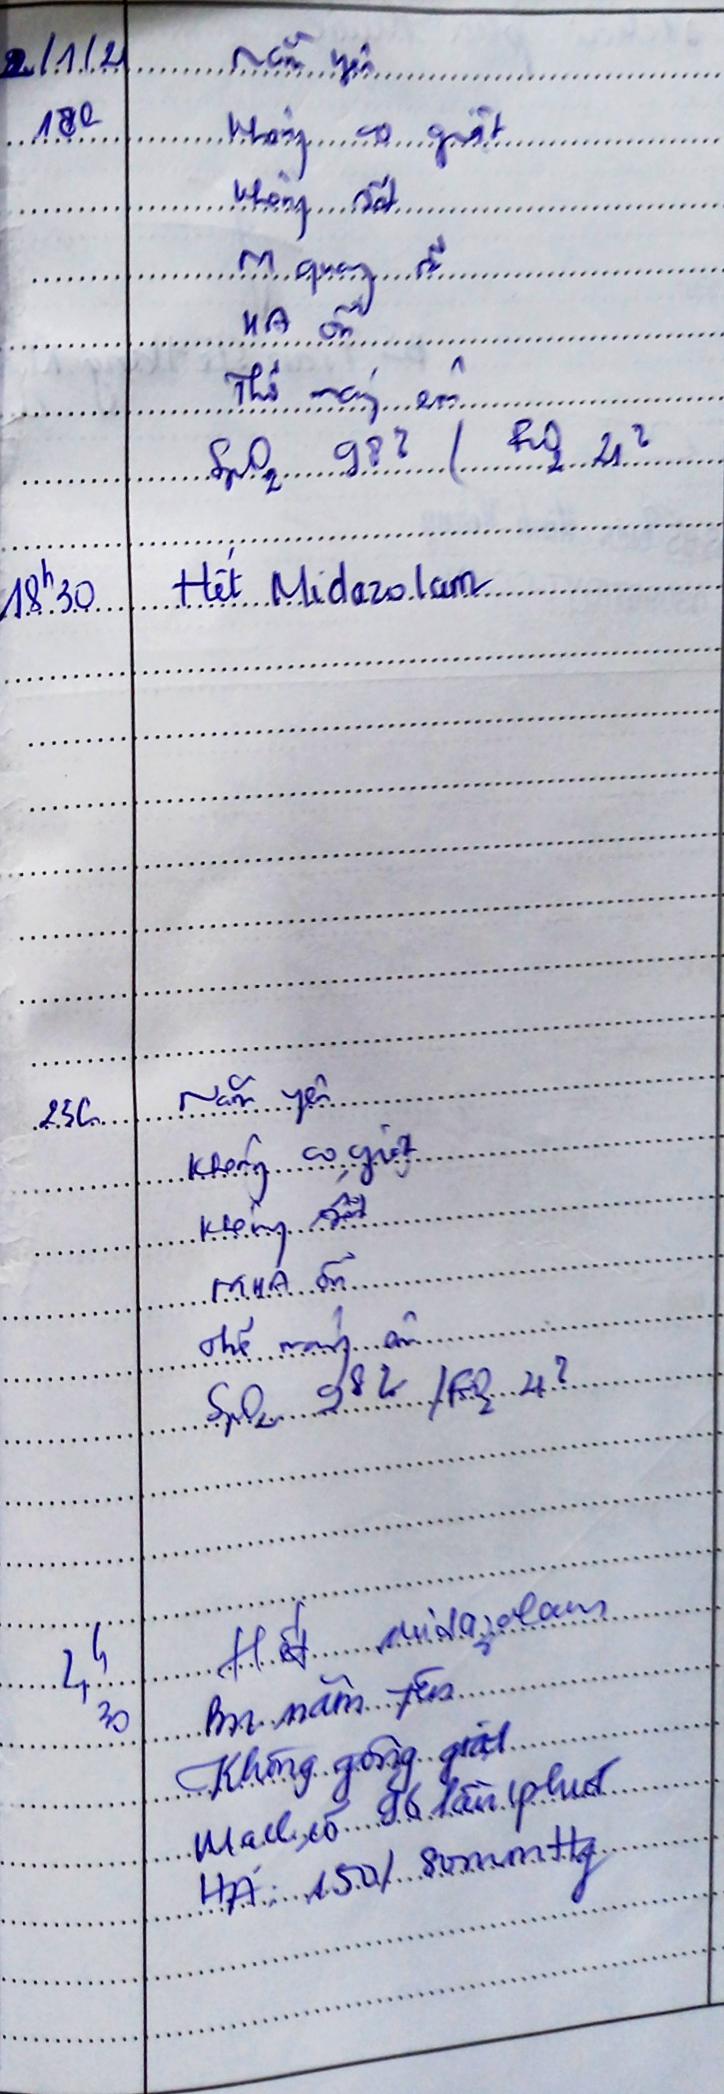 2/1/21 Nằm yên
18h Không co giật
Không sốt
M quay rõ
HA ổn
Thở máy êm
SpO2 98% / FiO2 41%
18h30 Hết Midazolam
23h Nằm yên
Không co giật
Không sốt
M HA ổn
thở máy êm
SpO2 98% / FiO2 41%
Hết midazolam
30 Bn nằm yên
Không gồng giật
Mạch: 96 lần/phút
HA: 150/80mmHg